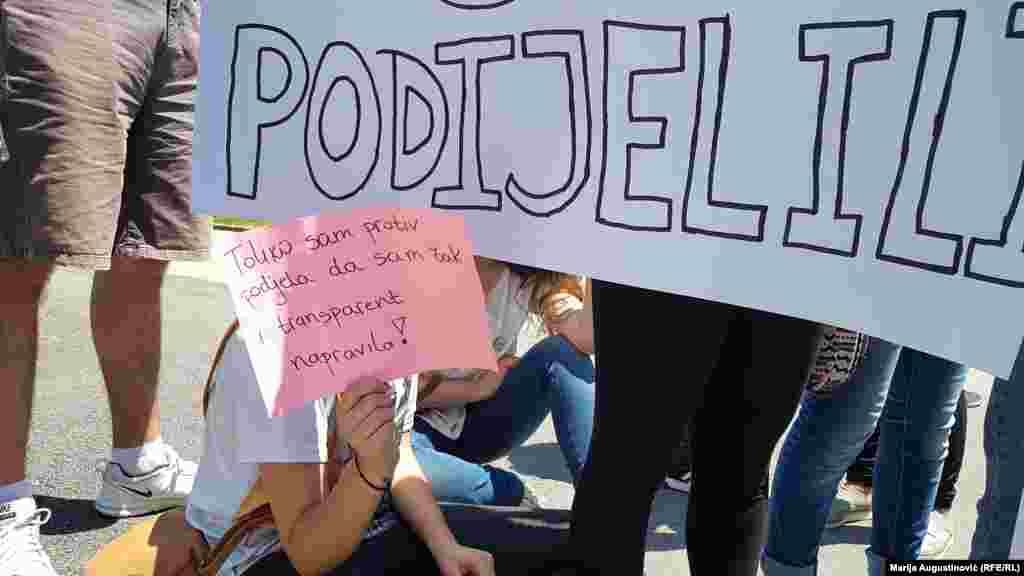 PODIJELILI
Toliko sam protiv
podjela da sam čak
i transparent
napravila!
Marija Augustinović (RFE/RL)